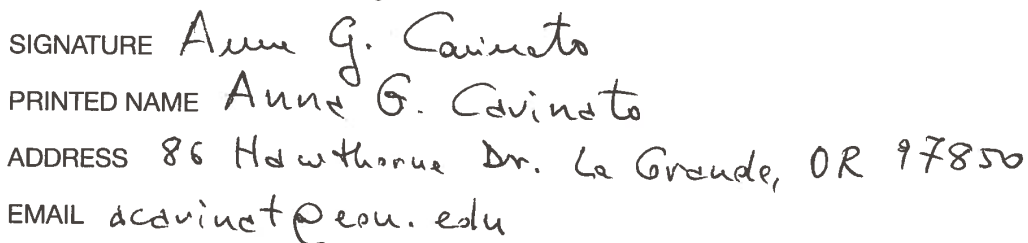 SIGNATURE Anna G. Cavinato
PRINTED NAME Anna G. Cavinato
ADDRESS 86 Hawthorne Dr. La Grande, OR 97850
EMAIL acavinat@eou.edu